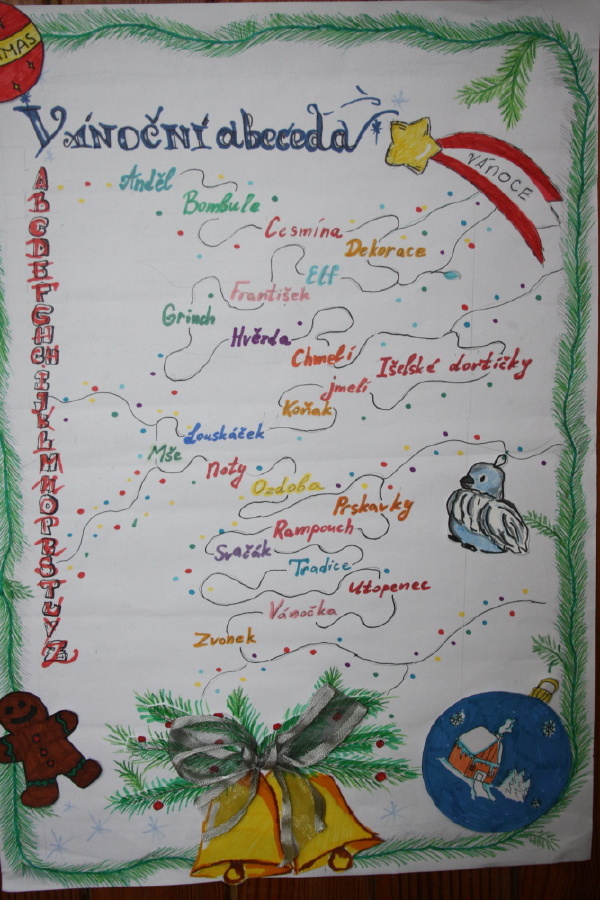 MAS
Vánoční abeceda
VÁNOCE
Anděl
Bombule
Cesmína
Dekorace
Elf
František
Grinch
Hvězda
Chmelí
Išelské dortíčky
jmelí
Koňak
Louskáček
Mše
noty
Ozdoba
Prskavky
Rampouch
Svařák
Tradice
Utopenec
Vánočka
Zvonek
A
B
C
D
E
F
G
H
CH
I
J
K
L
M
N
O
P
R
S
T
U
V
Z